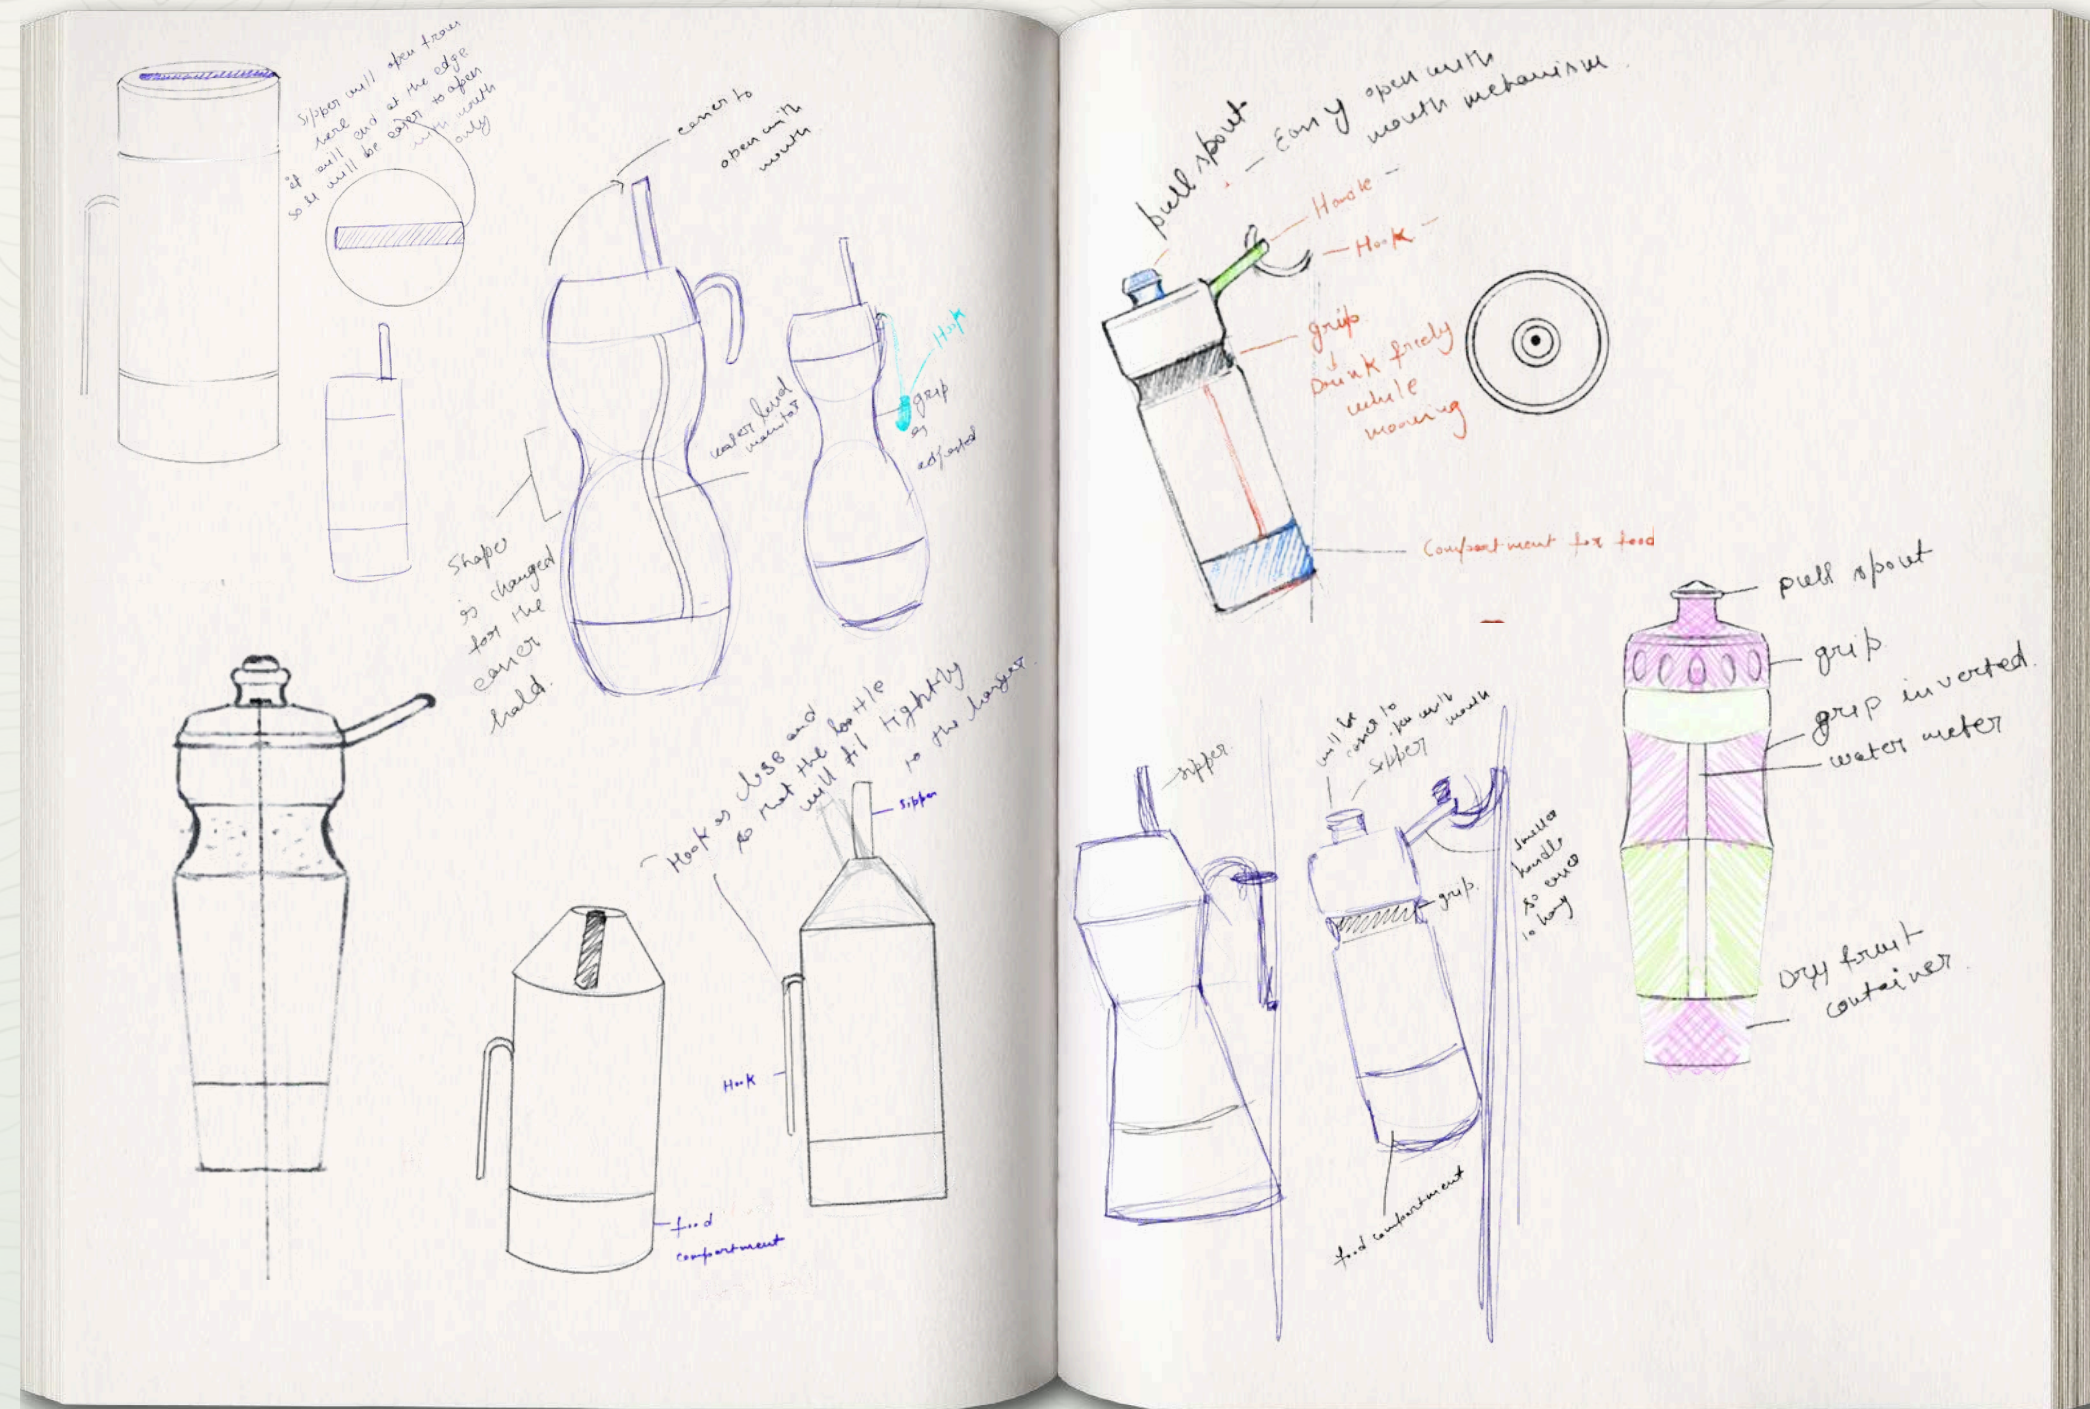 Sipper will open from
here and at the edge
it will end
so it will be easier to open
with mouth
only
easier to
open with
mouth
Hook
grip
adjusted
water level
Shape
is changed
for the
easier
hold.
Hook is close and
so that the bottle
will fit tightly
to the hanger
sipper
Hook
food
compartment
pull spout
Easy open with
mouth mechanism
Handle
Hook
grip
Drink freely
while
mooving
Compartment for food
pull spout
grip
grip inverted
water meter
Dry fruit
container
sipper
will be
easier to
open with
mouth
Sipper
grip.
smaller
handle
so easier
to hang
food compartment